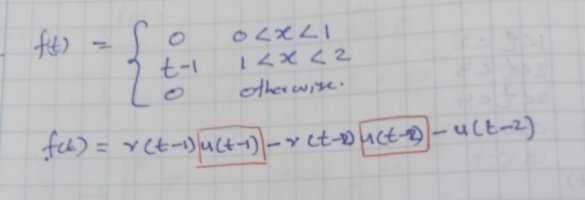 f(t) = { 0 0<x<1
t-1 1<x<2
0 otherwise.
f(t) = r(t-1) u(t-1) - r(t-2) u(t-2) - u(t-2)